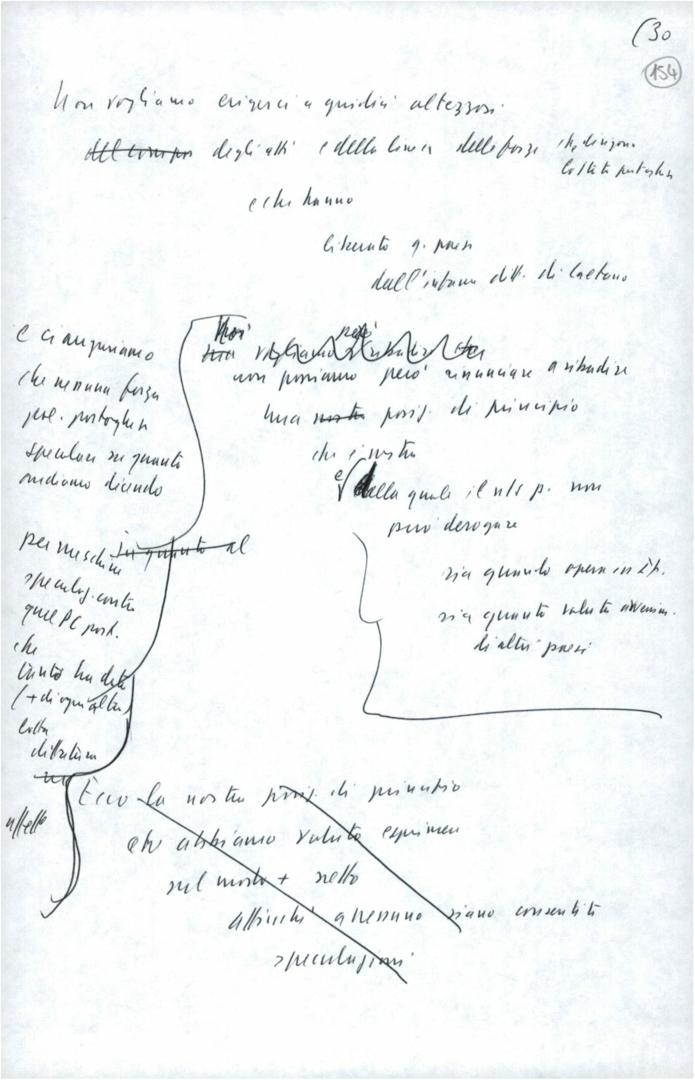 (30
154
Non vogliamo erigerci a giudici altezzosi
del campo degli atti e della linea delle forze che dirigono
lo Stato portoghese
e che hanno
liberato q. paese
dall'infame ditt. di Caetano
Noi però
ma vogliamo ribadire che
non possiamo però rinunciare a ribadire
una nostra posiz. di principio
che è nostra
e dalla quale il ns p. non
può derogare
sia quando opera in It.
sia quando valuta avvenim.
di altri paesi
e ci auguriamo
che nessuna forza
pol. portoghese
speculi su quanto
andiamo dicendo
in quanto al
per meschine
speculaz. contro
quel PC port.
che
tanto ha dato
(+ di ogni altro)
lotta
dittatura
affetto
Ecco la nostra posiz. di principio
che abbiamo voluto esprimere
nel modo + netto
affinché a nessuno siano consentite
speculazioni